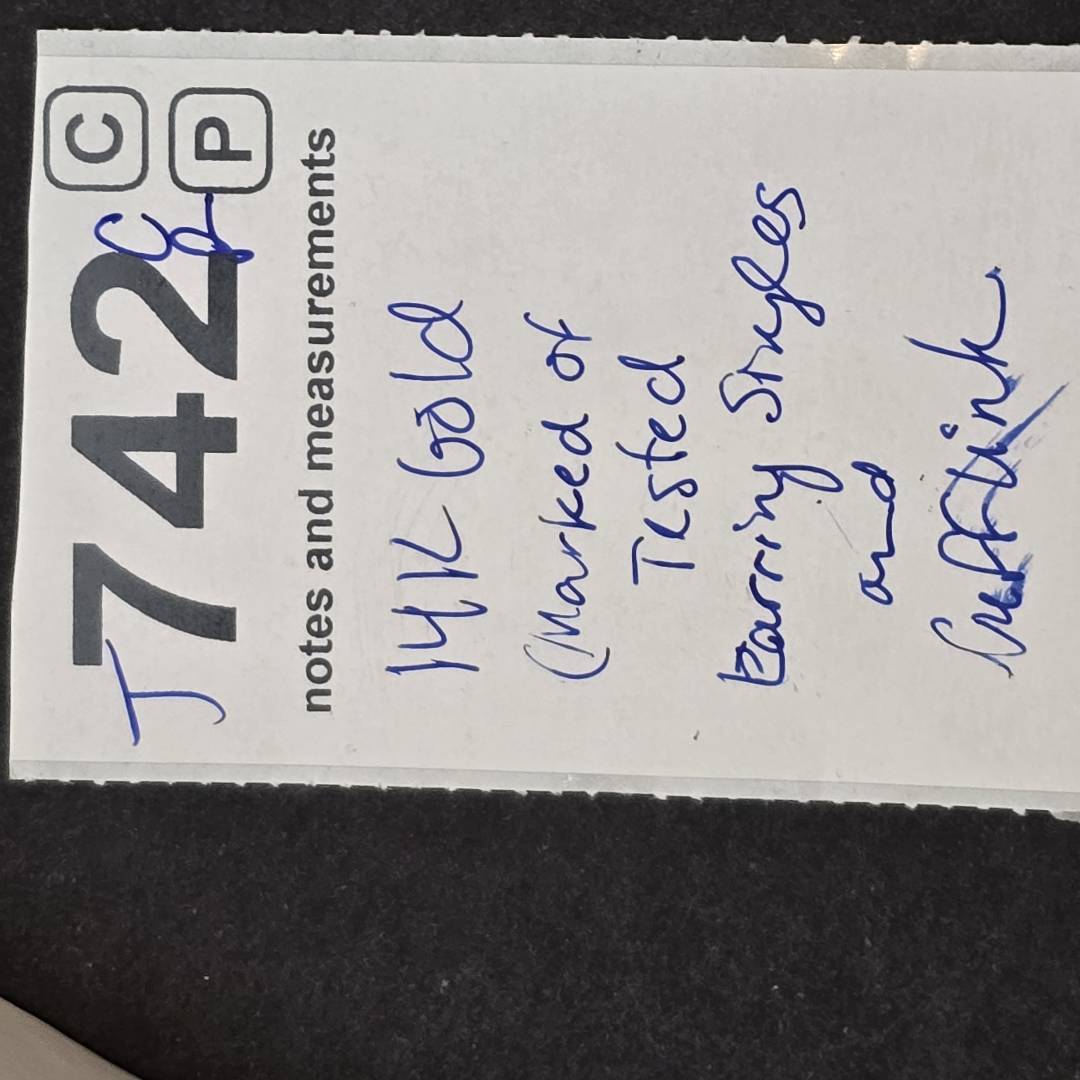 J742 C
P
notes and measurements
14K Gold
(Marked or
Tested
Earring Singles
and
Cufflink